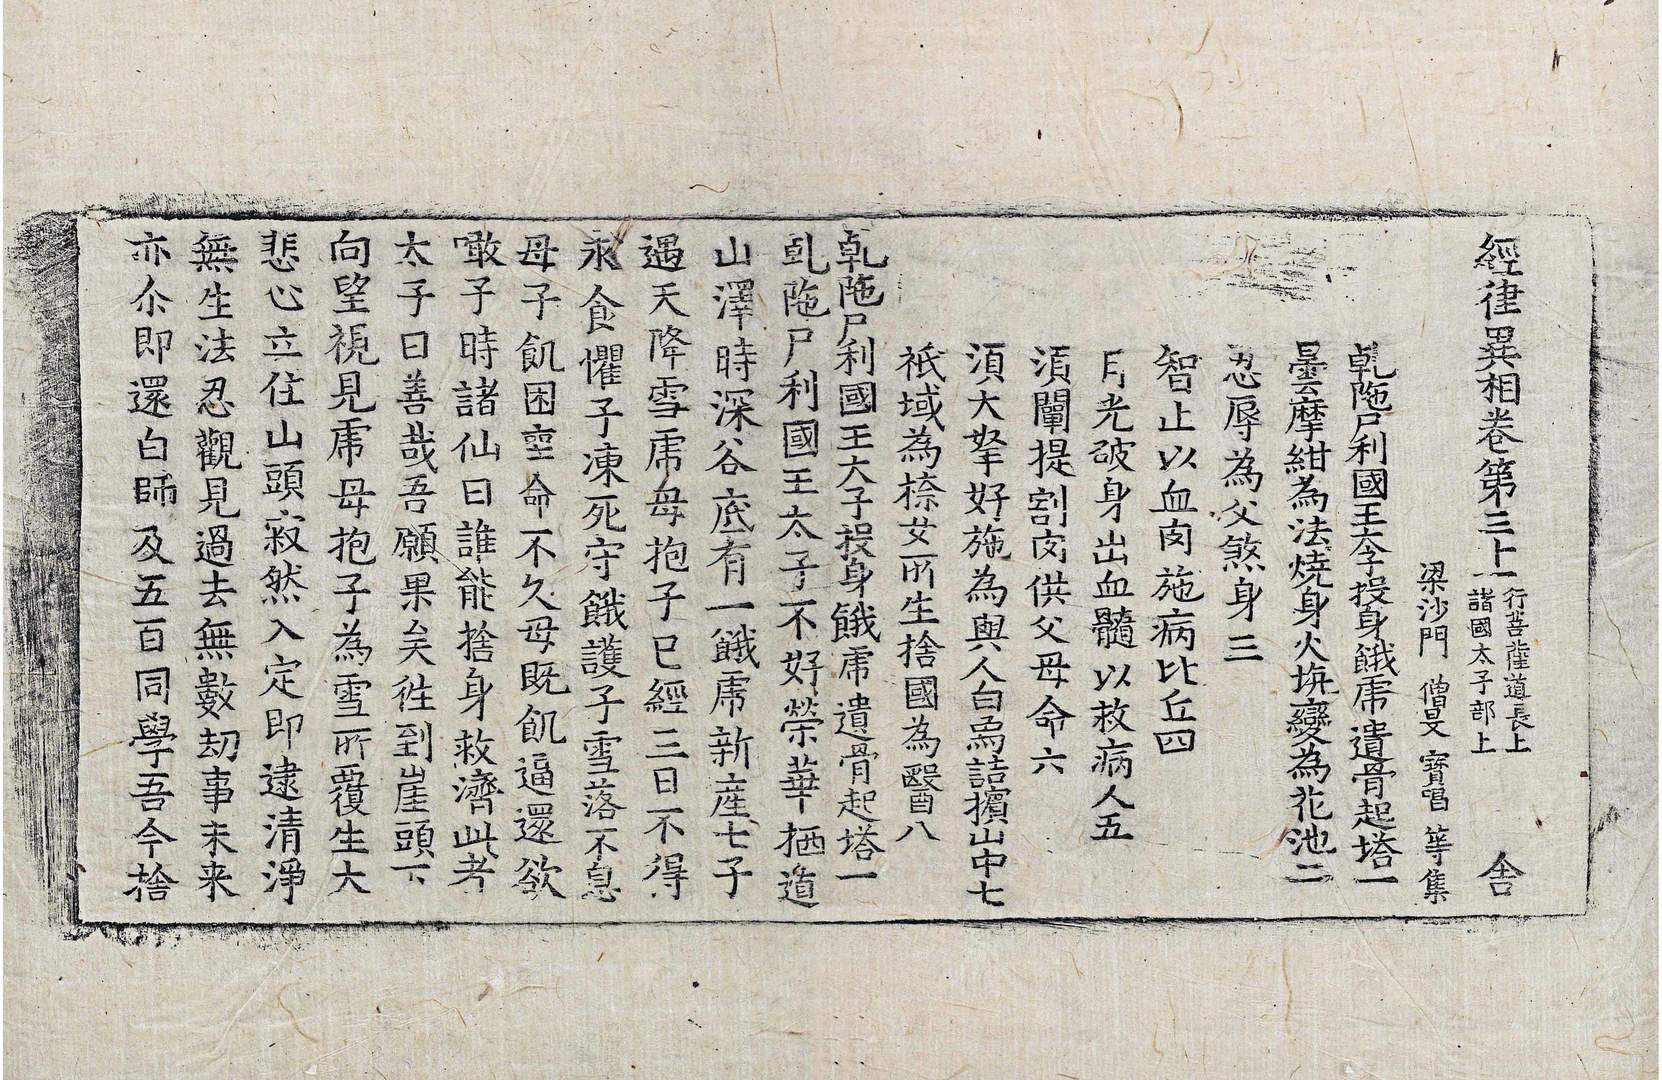 經律異相卷第三十一 行菩薩道長上 諸國太子部上 舍
梁沙門 僧旻 寶唱 等集
乹陁尸利國王太子投身餓虎遺骨起塔一
曇摩紺為法燒身火坑變為花池二
忍辱為父煞身三
智止以血肉施病比丘四
月光破身出血髓以救病人五
須闡提割肉供父母命六
須大拏好施為與人白烏詰擯山中七
祇域為㮈女所生捨國為毉八
乹陁尸利國王太子投身餓虎遺骨起塔一
乹陁尸利國王太子不好榮華栖遁
山澤時深谷底有一餓虎新產七子
遇天降雪虎母抱子已經三日不得
求食懼子凍死守餓護子雪落不息
母子飢困喪命不久母既飢逼還欲
噉子時諸仙曰誰能捨身救濟此者
太子曰善哉吾願果矣徃到崖頭下
向望視見虎母抱子為雪所覆生大
悲心立住山頭寂然入定即逮清淨
無生法忍觀見過去無數劫事未来
亦尒即還白師及五百同學吾今捨